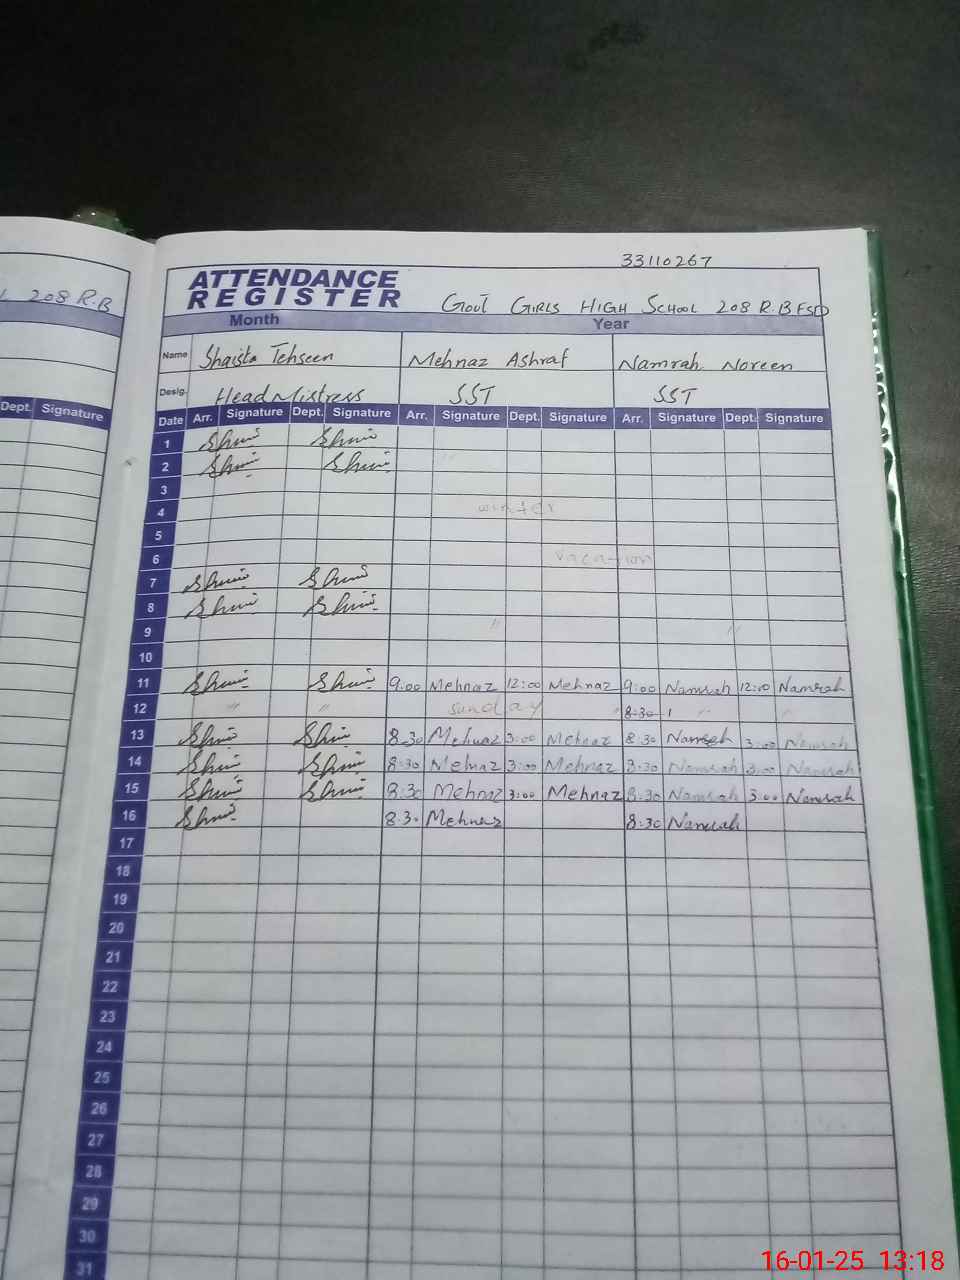 33110267
L 208 R.B
ATTENDANCE
REGISTER
Govt Girls High School 208 R.B FSD
Month Year
Name Shaista Tehseen Mehnaz Ashraf Namrah Noreen
Desig. Head Mistress SST SST
Dept. Signature
Date Arr. Signature Dept. Signature Arr. Signature Dept. Signature Arr. Signature Dept. Signature
1
2
3
4 winter
5
6 vacation
7
8
9 " "
10
11 9:00 Mehnaz 12:00 Mehnaz 9:00 Namrah 12:00 Namrah
12 " " sunday " 8:30 " "
13 8:30 Mehnaz 3:00 Mehnaz 8:30 Namrah 3:00 Namrah
14 8:30 Mehnaz 3:00 Mehnaz 8:30 Namrah 3:00 Namrah
15 8:30 Mehnaz 3:00 Mehnaz 8:30 Namrah 3:00 Namrah
16 8:30 Mehnaz 8:30 Namrah
17
18
19
20
21
22
23
24
25
26
27
28
29
30
31
16-01-25 13:18